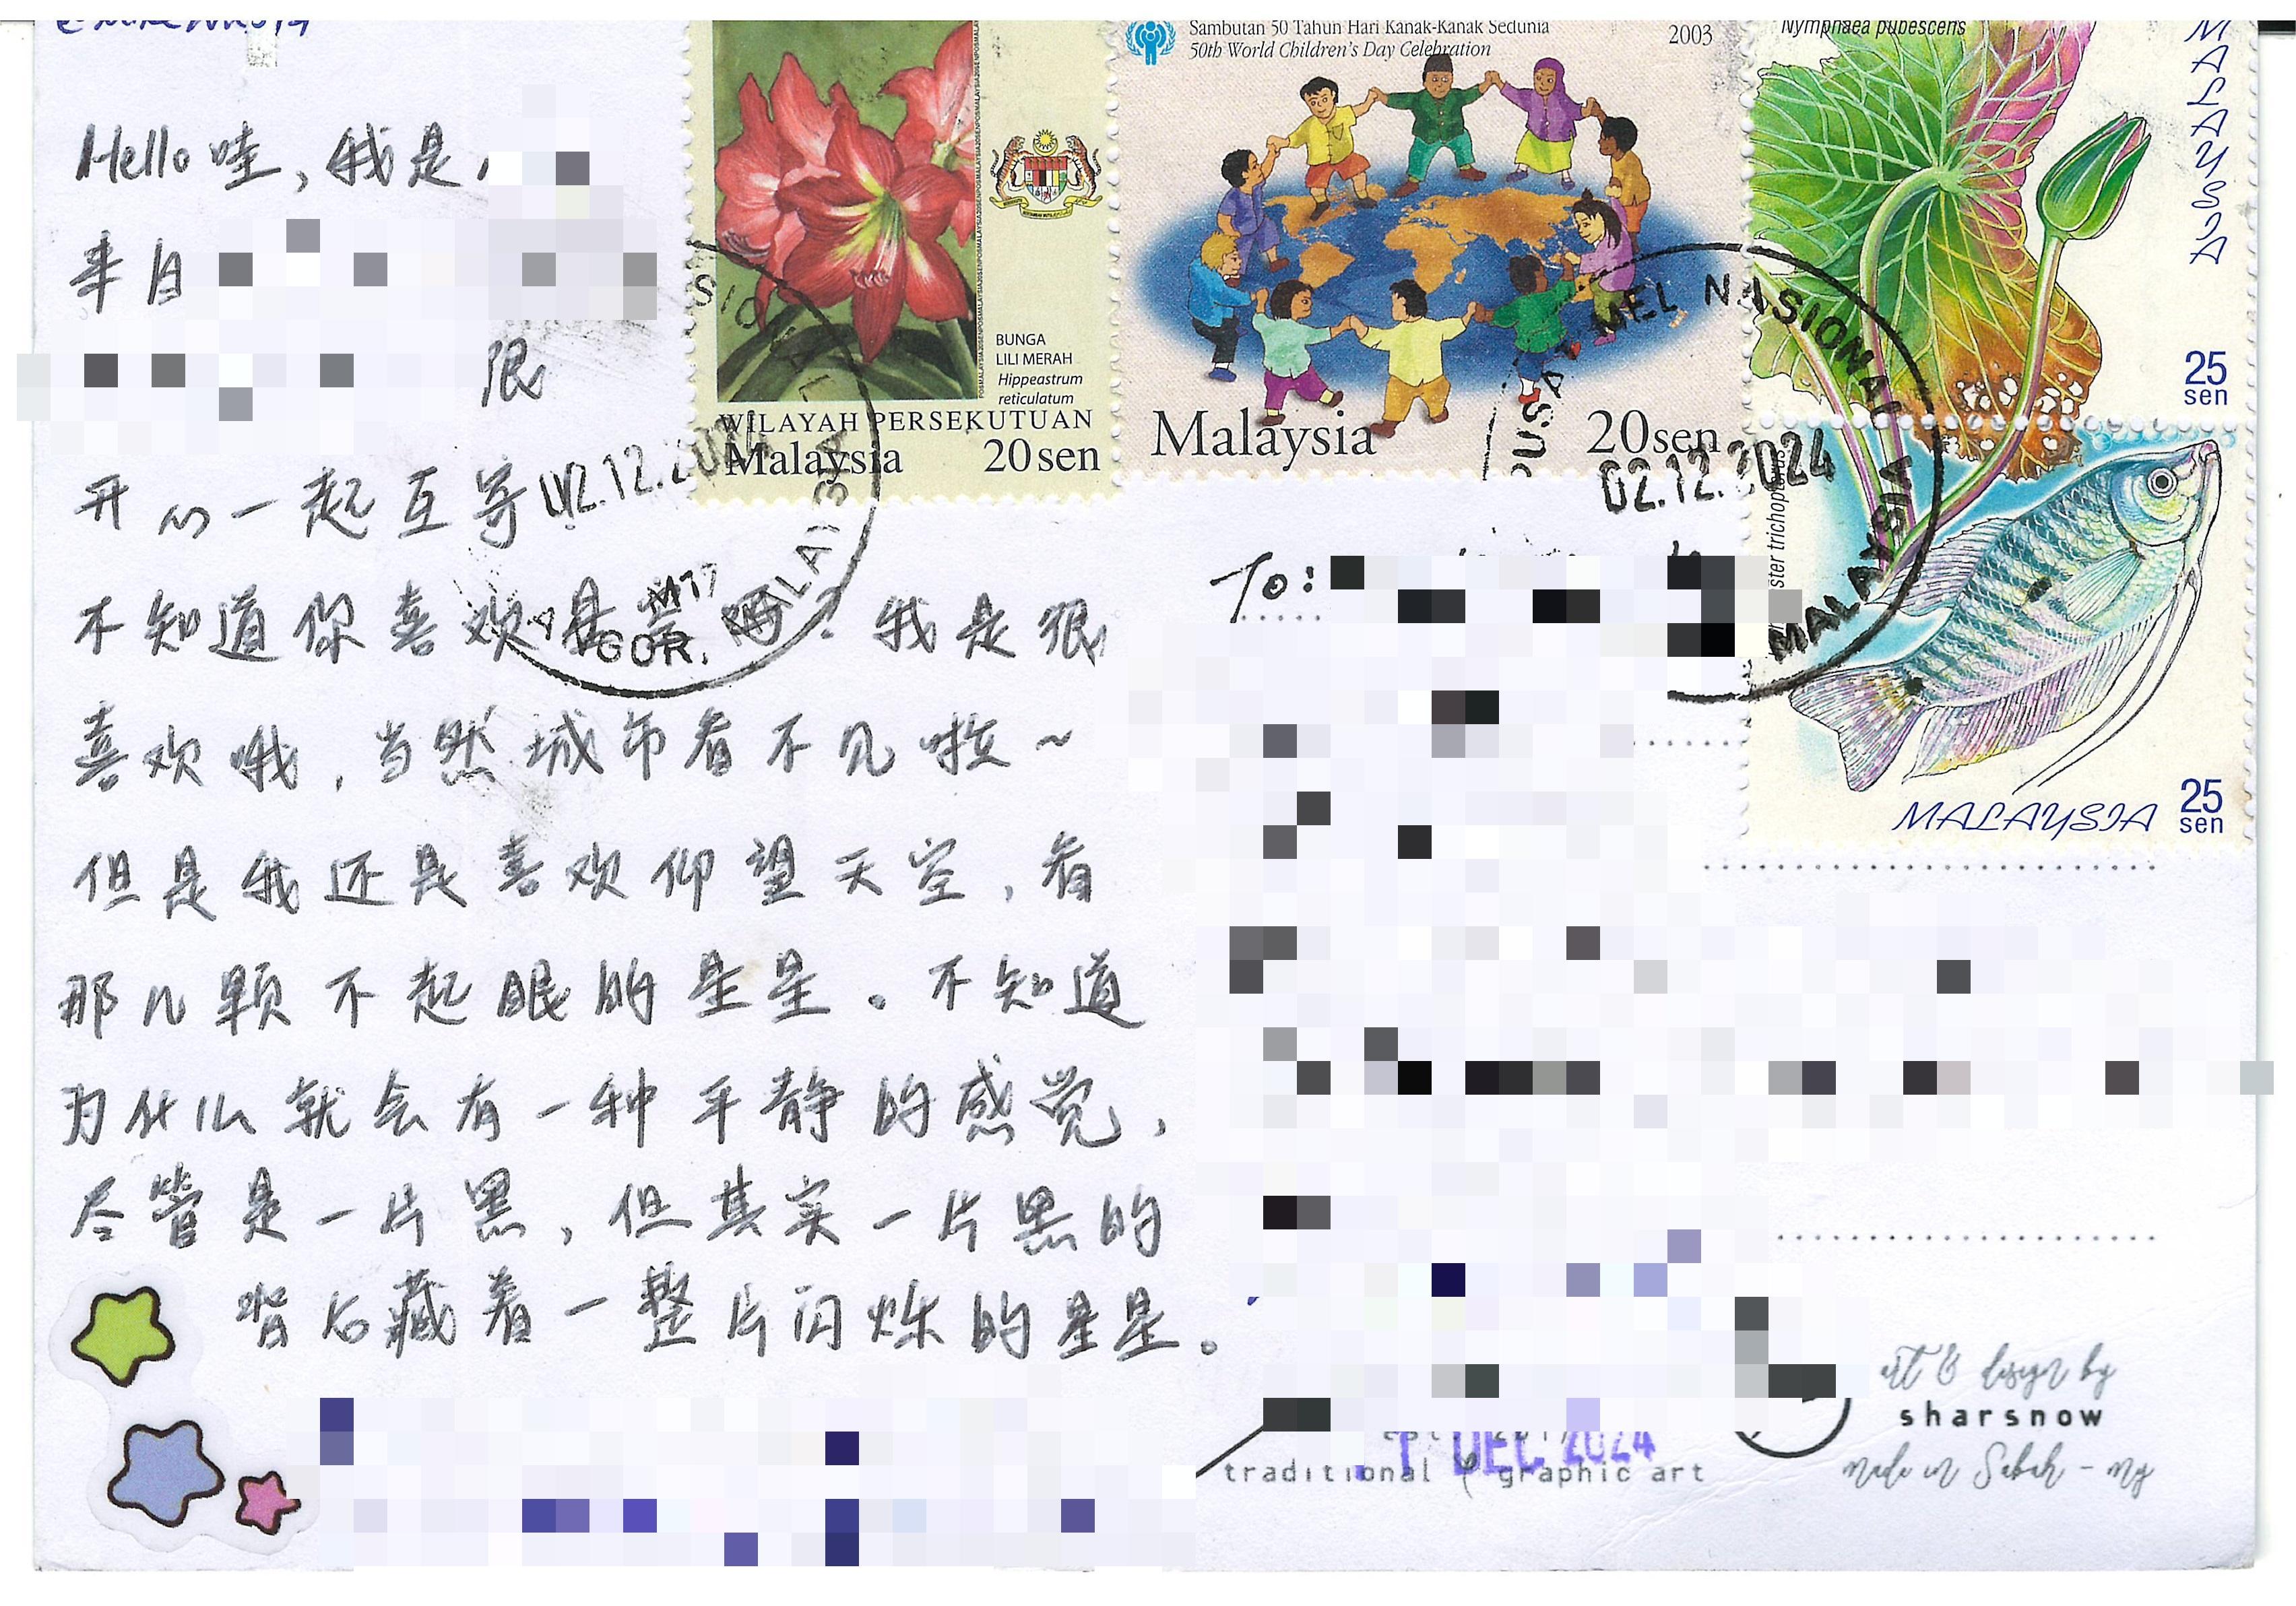 Hello哇，我是
来自
很
开心一起互寄
不知道你喜欢星空吗？我是很
喜欢哦，当然城市看不见啦~
但是我还是喜欢仰望天空，看
那几颗不起眼的星星。不知道
为什么就会有一种平静的感觉，
尽管是一片黑，但其实一片黑的
背后藏着一整片闪烁的星星。
BUNGA
LILI MERAH
Hippeastrum
reticulatum
WILAYAH PERSEKUTUAN
Malaysia 20sen
02.12.2024
Sambutan 50 Tahun Hari Kanak-Kanak Sedunia
50th World Children's Day Celebration
2003
Malaysia 20sen
PUSAT MEL NASIONAL
02.12.2024
MALAYSIA
Nymphaea pubescens
MALAYSIA
25
sen
trichopterus
MALAYSIA
25
sen
To:
DEC 2024
traditional & graphic art
art & design by
sharsnow
made in Sabah - my